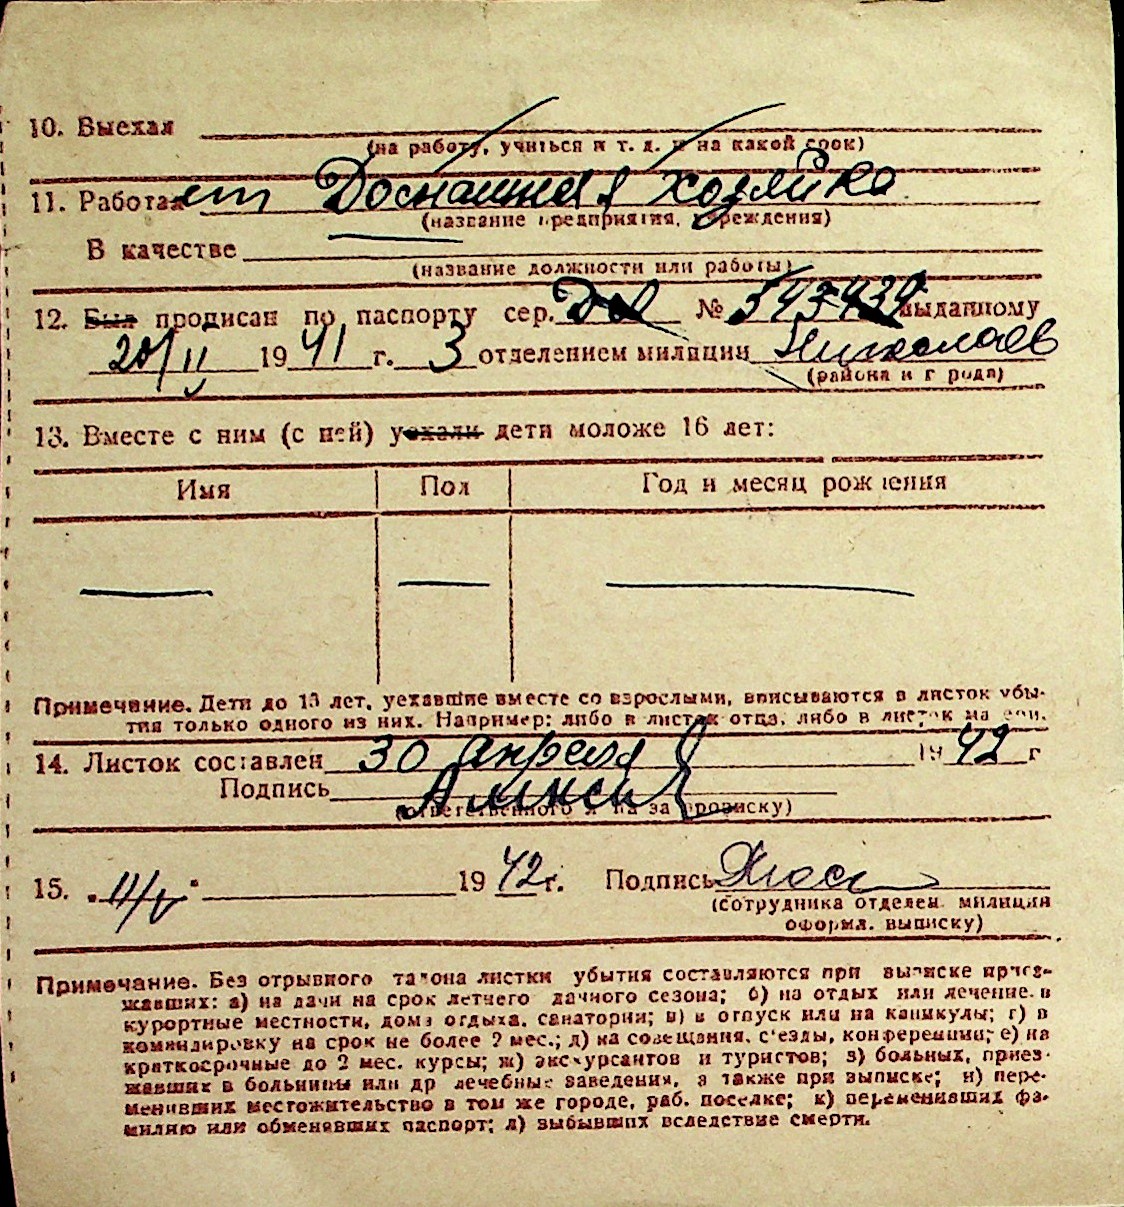 10. Выехал
(на работу, учиться и т. д. и на какой срок)
11. Работает Домашняя хозяйка
(название предприятия, учреждения)
В качестве
(название должности или работы)
12. Был прописан по паспорту сер. № 543439 выданному
20/II 1941 г. 3 отделением милиции Николаев
(района и города)
13. Вместе с ним (с ней) уехали дети моложе 16 лет:
Имя Пол Год и месяц рождения
Примечание. Дети до 13 лет, уехавшие вместе со взрослыми, вписываются в листок убы-
тия только одного из них. Например: либо в листок отца, либо в листок матери.
14. Листок составлен 30 апреля 1942 г
Подпись
(ответственного л на за прописку)
15. „11/V" 1942 г. Подпись
(сотрудника отделен. милиции
оформл. выписку)
Примечание. Без отрывного талона листки убытия составляются при выписке приез-
жавших: а) на дачи на срок летнего дачного сезона; б) на отдых или лечение в
курортные местности, дома отдыха, санатории; в) в отпуск или на каникулы; г) в
командировку на срок не более 2 мес.; д) на совещания, съезды, конференции; е) на
краткосрочные до 2 мес. курсы; ж) экскурсантов и туристов; з) больных, приез-
жавших в больницы или др лечебные заведения, а также при выписке; и) пере-
менивших местожительство в том же городе, раб. поселке; к) переменивших фа-
милию или обменявших паспорт; л) выбывших вследствие смерти.